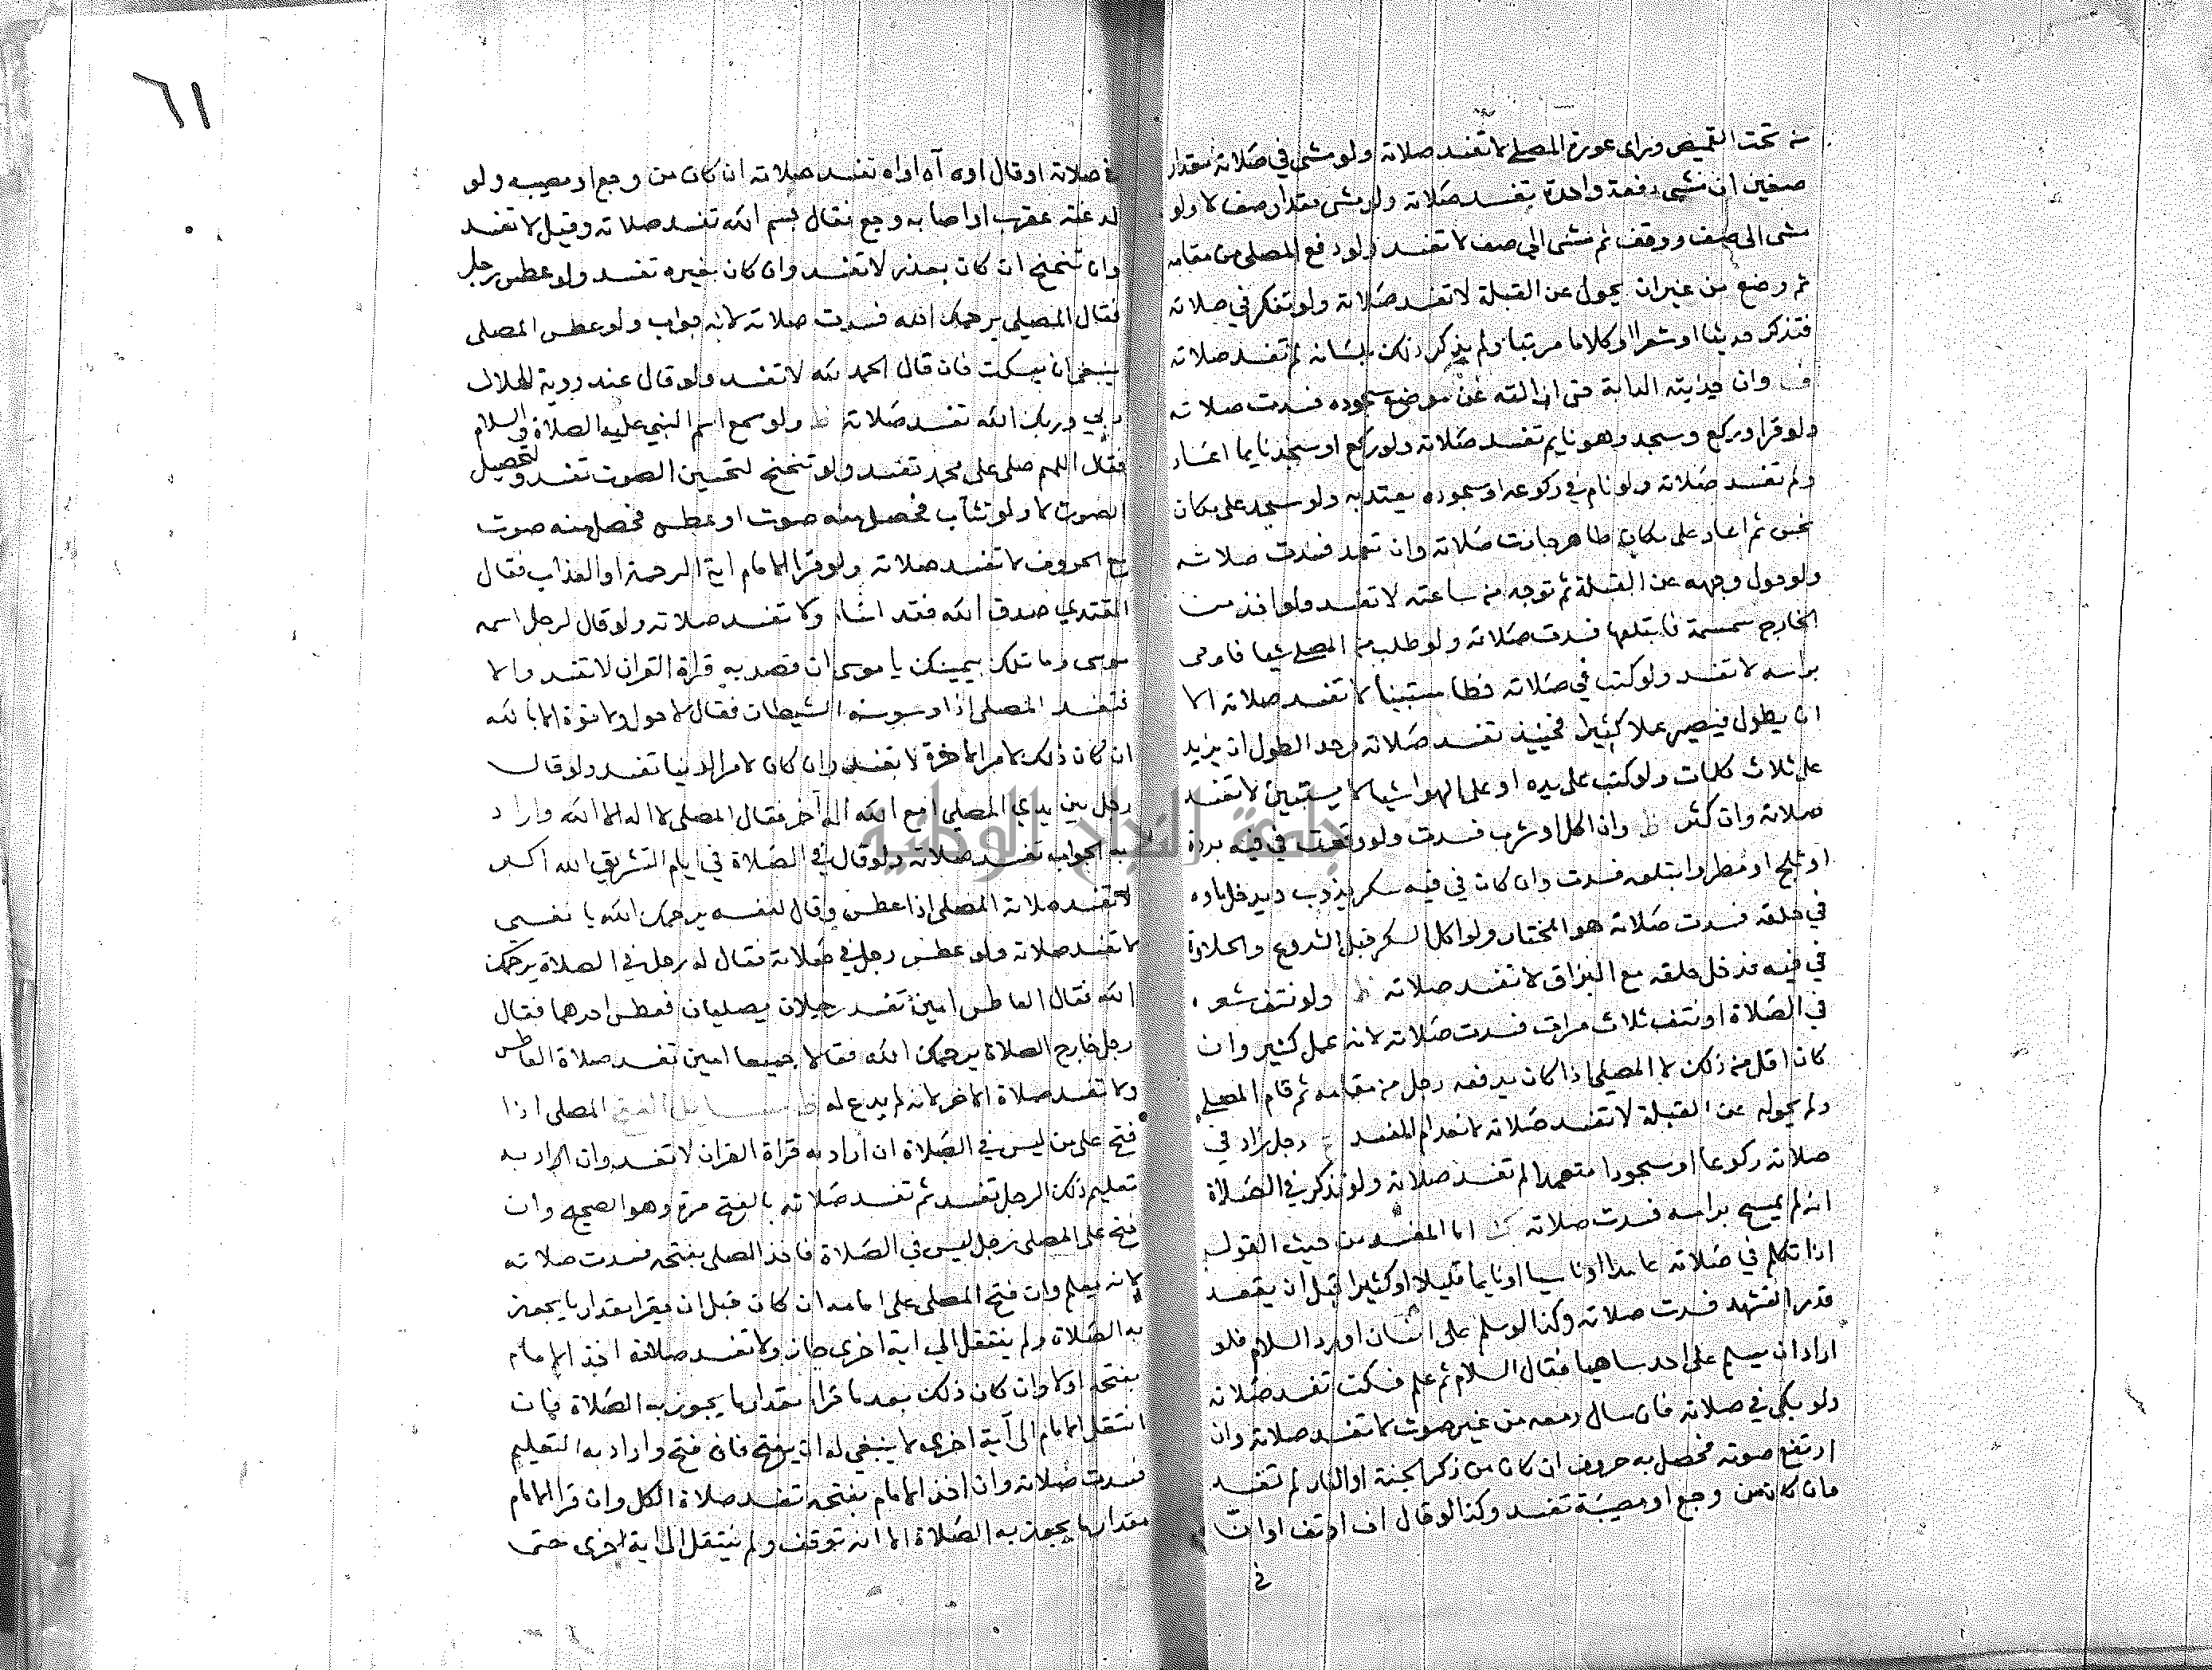 من تحت القميص وراى عورة المصلي لا تفسد صلاته ولو مشى في صلاته مقدار
صفين ان مشى دفعة واحدة تفسد صلاته ولو مشى مقدار صف لا ولو
مشى الى صف ووقف ثم مشى الى صف لا تفسد ولو دفع المصلي من مقامه
ثم وضع من غير ان يحول عن القبلة لا تفسد صلاته ولو تفكر في صلاته
فتذكر حديثا او شعرا او كلاما مرتبا ولم يذكر ذلك بلسانه لم تفسد صلاته
وان جذبته الدابة حتى ازالته عن موضع سجوده فسدت صلاته
ولو قرا وركع وسجد وهو نايم تفسد صلاته ولو ركع او سجد نايما اعاد
ولم تفسد صلاته ولو نام في ركوعه او سجوده يعتد به ولو سجد على مكان
نجس ثم اعاد على مكان طاهر جازت صلاته وان تعمد فسدت صلاته
ولو حول وجهه عن القبلة ثم توجه من ساعته لا تفسد ولو اخذ من
الخارج سمسمة فابتلعها فسدت صلاته ولو طلب من المصلي شيا فاومى
براسه لا تفسد ولو كتب في صلاته خطا مستبينا لا تفسد صلاته الا
ان يطول فيصير عملا كثيرا فحينيذ تفسد صلاته وحد الطول ان يزيد
على ثلاث كلمات ولو كتب على يده او على الهوا شيا لا يستبين لا تفسد
صلاته وان كثر ظ وان اكل او شرب فسدت ولو وقعت في فيه بردة
او ثلج او مطر وابتلعه فسدت وان كان في فيه سكر يذوب ويدخل ماوه
في حلقه فسدت صلاته هو المختار ولو اكل السكر قبل الشروع والحلاوة
في فيه فدخل حلقه مع البزاق لا تفسد صلاته ظ ولو نتف شعره
في الصلاة او نتف ثلاث مرات فسدت صلاته لانه عمل كثير وان
كان اقل من ذلك لا المصلي اذا كان يدفعه رجل من مقامه ثم قام المصلي
ولم يحوله عن القبلة لا تفسد صلاته لانعدام المفسد رجل زاد في
صلاته ركوعا او سجودا متعمدا لم تفسد صلاته ولو تذكر في الصلاة
انه لم يمسح براسه فسدت صلاته اما المفسد من حيث القول
اذا تكلم في صلاته عامدا او ناسيا او نايما قليلا او كثيرا قبل ان يقعد
قدر التشهد فسدت صلاته وكذا لو سلم على انسان او رد السلام فلو
اراد ان يسلم على احد ساهيا فقال السلام ثم علم فسكت تفسد صلاته
ولو بكى في صلاته فان سال دمعه من غير صوت لا تفسد صلاته وان
ارتفع صوته فحصل به حروف ان كان من ذكر الجنة او النار لم تفسد
وان كان من وجع او مصيبة تفسد وكذا لو قال اف او تف او ان
في
٦١
في صلاته او قال اوه آه اواه تفسد صلاته ان كان من وجع او مصيبه ولو
لدغته عقرب او اصابه وجع فقال بسم الله تفسد صلاته وقيل لا تفسد
وان تنحنح ان كان بعذر لا تفسد وان كان بغيره تفسد ولو عطس رجل
فقال المصلي يرحمك الله فسدت صلاته لانه جواب ولو عطس المصلي
ينبغي ان يسكت فان قال الحمد لله لا تفسد ولو قال عند روية الهلال
ربي وربك الله تفسد صلاته ظ ولو سمع اسم النبي عليه الصلاة والسلام
فقال اللهم صلي على محمد تفسد ولو تنحنح لتحسين الصوت تفسد ولتحصيل
الصوت لا ولو تثآب فحصل منه صوت او عطس فحصل منه صوت
مع الحروف لا تفسد صلاته ولو قرا الامام اية الرحمة او العذاب فقال
المقتدي صدق الله فقد اساء ولا تفسد صلاته ولو قال لرجل اسمه
موسى وما تلك بيمينك يا موسى ان قصد به قراة القران لا تفسد والا
فتفسد المصلي اذا وسوسه الشيطان فقال لا حول ولا قوة الا بالله
ان كان ذلك لامر الاخرة لا تفسد وان كان لامر الدنيا تفسد ولو قال
رجل بين يدي المصلي امع الله اله آخر فقال المصلي لا اله الا الله واراد
به الجواب تفسد صلاته ولو قال في الصلاة في ايام التشريق الله اكبر
لا تفسد صلاته المصلي اذا عطس وقال لنفسه يرحمك الله يا نفسي
لا تفسد صلاته ولو عطس رجل في صلاته فقال له رجل في الصلاة يرحمك
الله فقال العاطس امين تفسد رجلان يصليان فعطس احدهما فقال
رجل خارج الصلاة يرحمك الله فقالا جميعا امين تفسد صلاة العاطس
ولا تفسد صلاة الاخر لانه لم يدع له مسايل الفتح المصلي اذا
فتح على من ليس في الصلاة ان اراد به قراة القران لا تفسد وان اراد به
تعليم ذلك الرجل تفسد ثم تفسد صلاته بالفتح مرة وهو الصحيح وان
فتح على المصلي رجل ليس في الصلاة فاخذ المصلي بفتحه فسدت صلاته
لانه تعلم وان فتح المصلي على امامه ان كان قبل ان يقرا مقدار ما يجوز
به الصلاة ولم ينتقل الى اية اخرى جاز ولا تفسد صلاته اخذ الامام
بفتحه اولا وان كان ذلك بعد ما قرا مقدار ما يجوز به الصلاة فان
انتقل الامام الى آية اخرى لا ينبغي له ان يفتح فان فتح واراد به التعليم
فسدت صلاته وان اخذ الامام بفتحه تفسد صلاة الكل وان قرا الامام
مقدار ما يجوز به الصلاة الا انه توقف ولم ينتقل الى اية اخرى حتى
جامعة النجاح الوطنية